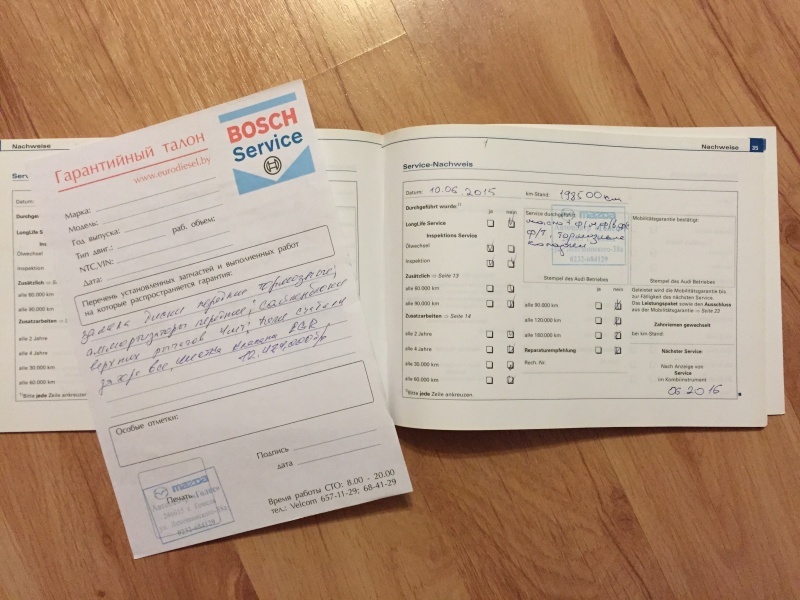 Гарантийный талон
www.eurodiesel.by
BOSCH
Service
Марка:
Модель:
Год выпуска:
раб. объем:
Тип двиг.:
NTC,VIN:
Дата:
Перечень установленных запчастей и выполненных работ
на которые распространяется гарантия:
замена диски передние тормозные,
аммортизаторы передние,
верхних рычагов
клапана EGR
Особые отметки:
Подпись
дата
Печать
mazda
0232-684129
Время работы СТО: 8.00 - 20.00
тел.: Velcom 657-11-29; 68-41-29
Nachweise
Datum:
LongLife S
Ölwechsel
Inspektion
alle 60.000 km
alle 90.000 km
Zusatzarbeiten
alle 2 Jahre
alle 4 Jahre
alle 30.000 km
alle 60.000 km
*)Bitte jede Zeile ankreuzen.
Nachweise 35
Service-Nachweis
Datum: 10.06.2015 km-Stand: 198500 km
Durchgeführt wurde:*) ja nein
LongLife Service
Inspektions Service
Ölwechsel
Inspektion
Zusätzlich ⇒ Seite 13
alle 60.000 km
alle 90.000 km
Zusatzarbeiten ⇒ Seite 14
alle 2 Jahre
alle 4 Jahre
alle 30.000 km
alle 60.000 km
*)Bitte jede Zeile ankreuzen.
Service durchgeführt:
ф/т. тормозные
колодки
0232-684129
Stempel des Audi Betriebs
ja nein
alle 90.000 km
alle 120.000 km
alle 180.000 km
Reparaturempfehlung
Rech.-Nr.
Mobilitätsgarantie bestätigt:
Stempel des Audi Betriebs
Geleistet wird die Mobilitätsgarantie bis
zur Fälligkeit des nächsten Service.
Das Leistungspaket sowie den Ausschluss
aus der Mobilitätsgarantie ⇒ Seite 22
Zahnriemen gewechselt
bei km-Stand:
Nächster Service:
Nach Anzeige von
Service
im Kombiinstrument
06 2016